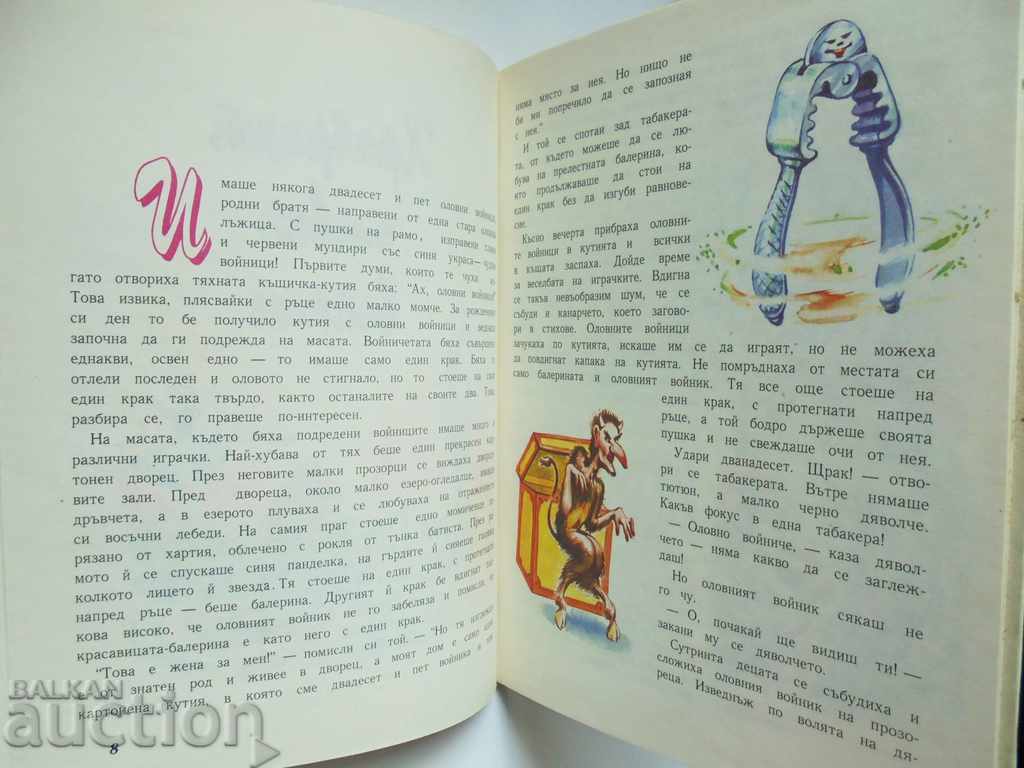 И
маше някога двадесет и пет оловни войници,
родни братя — направени от една стара оловна
лъжица. С пушки на рамо, изправени глави
и червени мундири със синя украса — чудни
войници! Първите думи, които те чуха, ко-
гато отвориха тяхната къщичка-кутия бяха: “Ах, оловни войници!”
Това извика, плясвайки с ръце едно малко момче. За рождения
си ден то бе получило кутия с оловни войници и веднага
започна да ги подрежда на масата. Войничетата бяха съвършено
еднакви, освен едно — то имаше само един крак. Бяха го
отлели последен и оловото не стигнало, но то стоеше на своя
един крак така твърдо, както останалите на своите два. Това,
разбира се, го правеше по-интересен.
На масата, където бяха подредени войниците имаше много и
различни играчки. Най-хубава от тях беше един прекрасен кар-
тонен дворец. През неговите малки прозорци се виждаха дворцо-
вите зали. Пред двореца, около малко езеро-огледалце, имаше
дръвчета, а в езерото плуваха и се любуваха на отражението
си восъчни лебеди. На самия праг стоеше едно момиченце, из-
рязано от хартия, облечено с рокля от тънка батиста. През ра-
мото ѝ се спускаше синя панделка, на гърдите ѝ сияеше голяма
колкото лицето ѝ звезда. Тя стоеше на един крак, с протегнати
напред ръце — беше балерина. Другият ѝ крак бе вдигнат тол-
кова високо, че оловният войник не го забеляза и помисли, че
красавицата-балерина е като него с един крак.
“Това е жена за мен!” — помисли си той. — “Но тя изглежда
е от знатен род и живее в дворец, а моят дом е само една
картонена кутия, в която сме двадесет и пет войника и
8
няма място за нея. Но нищо не
би ми попречило да се запозная
с нея.”
И той се спотаи зад табакера-
та, от където можеше да се лю-
бува на прелестната балерина, ко-
ято продължаваше да стои на
един крак без да изгуби равнове-
сие.
Късно вечерта прибраха оловни-
те войници в кутията и всички
в къщата заспаха. Дойде време
за веселбата на играчките. Вдигна
се такъв невъобразим шум, че се
събуди и канарчето, което загово-
ри в стихове. Оловните войници
зачукаха по кутията, искаше им се да играят, но не можеха
да повдигнат капака на кутията. Не помръднаха от местата си
само балерината и оловният войник. Тя все още стоеше на
един крак, с протегнати напред
ръце, а той бодро държеше своята
пушка и не свеждаше очи от нея.
Удари дванадесет. Щрак! — отво-
ри се табакерата. Вътре нямаше
тютюн, а малко черно дяволче.
Какъв фокус в една табакера!
— Оловно войниче, — каза дявол-
чето — няма какво да се заглеж-
даш!
Но оловният войник сякаш не
го чу.
— О, почакай ще видиш ти! —
закани му се дяволчето.
Сутринта децата се събудиха и
сложиха оловния войник на прозо-
реца. Изведнъж по волята на дя-
BALKAN
auction